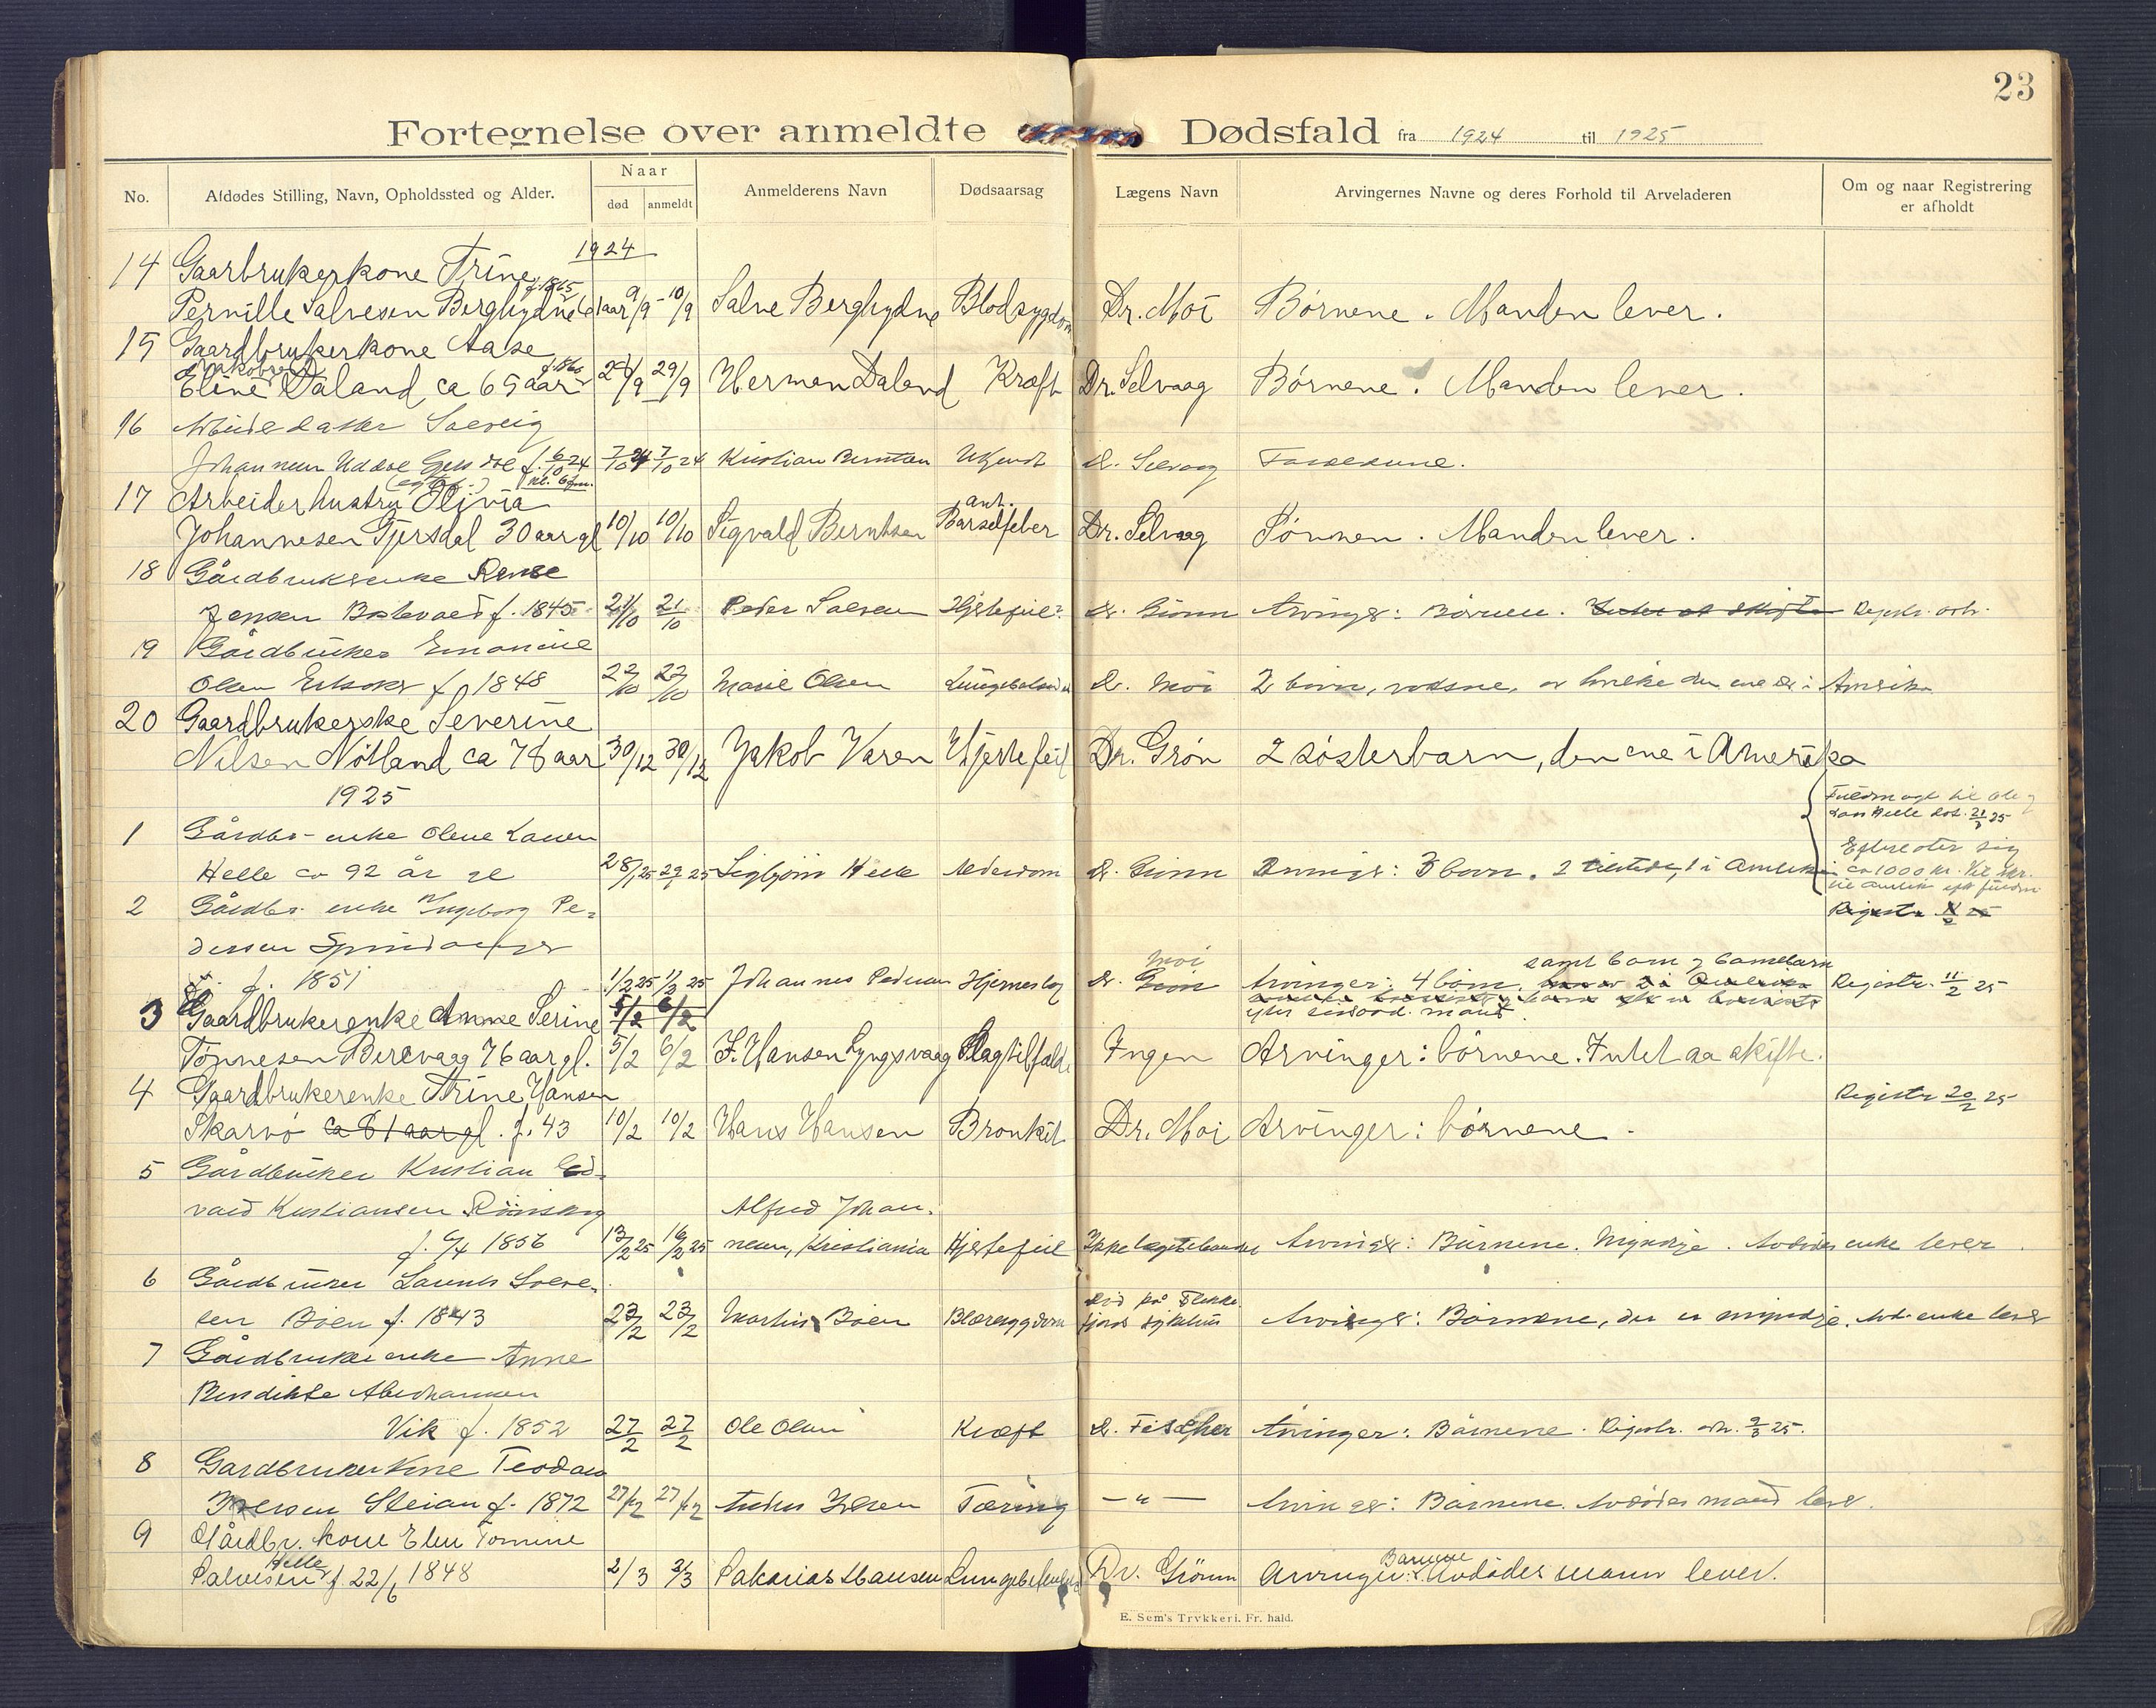 23
Fortegnelse over anmeldte Dødsfald fra 1924 til 1925
No. Afdødes Stilling, Navn, Opholdssted og Alder. Naar død anmeldt Anmelderens Navn Dødsaarsag Lægens Navn Arvingernes Navne og deres Forhold til Arveladeren Om og naar Registrering er afholdt
1924
14 Gaarbrukerkone Trine f. 1865
Pernille Salvesen Berghydne 61 aar 9/9 - 10/9 Salve Berghydne Blodsygdom Dr. Moi Børnene. Manden lever.
15 Gaardbrukerkone Aase
Jakobine f. 1860
Eline Daland ca 65 aar 28/9 29/9 Herman Daland Kræft Dr. Selvaag Børnene. Manden lever.
16 datter Solveig
f. 6/10 24 7/10 24 7/10 24 Kristian Berntsen Ukjendt d. Selvaag Forældrene.
kl. 6 fm.
17 Arbeiderhustru Olivia ant.
Johannesen Gjersdal 30 aar gl 10/10 10/10 Sigvald Berntsen Barselfeber Dr. Selvaag Sønnen. Manden lever.
18 Gårdbrukerenke
Jensen f. 1845 21/10 21/10 Peder Hjertefeil? d. Grønn Arvinger: Børnene.
19 Gårdbruker Emanuel
Olsen f. 1848 22/10 22/10 Marie Olsen d. Moi 2 børn, voksne, av hvilke den ene er i Amerika
20 Gaardbrukerske Severine
Nilsen Nötland ca 78 aar 30/12 30/12 Jakob Varen Hjertefeil Dr. Grön 2 søsterbarn, den ene i Amerika
1925
Fuldmagt til Ole
Lars Helle dat. 25
1 Gårdbr. enke Olene Larsen
Efterlater sig
Helle ca 92 år gl 28/1 25 29/1 25 Sigbjörn Helle Alderdom d. Grönn Arvinger: 3 børn. 2 tilstede, 1 i Amerika ca 1000 kr.
2 Gårdbr. enke Ingeborg Pe-
dersen Spindanger
Moi samt barn og barnebarn
f. 1851 1/2 25 1/2 25 Johannes Pedersen Hjerneslag d. Grön Arvinger: 4 børn. Registr. 11/2 25
3 Gaardbrukerenke Anne Serine 5/2 6/2
Tønnesen Berevaag 76 aar gl. 5/2 6/2 F. Hansen Lyngsvaag Slagtilfælde Ingen Arvinger: børnene. Intet aa skifte.
4 Gaardbrukerenke Trine Hansen Registr 20/2 25
Skarvö ca 81 aar gl. f. 43 10/2 10/2 Hans Hansen Bronkit Dr. Moi Arvinger: børnene.
5 Gårdbruker Kristian Ed-
vard Kristiansen Alfred Johan-
f. 1856 13/2 25 16/2 25 nesen, Kristiania Hjertefeil Ikke lægebehandlet Arvinger: Børnene. Myndige. Avdødes enke lever.
6 Gårdbruker
död på Flekke-
Böen f. 1843 23/2 23/2 Martin Böen Blæresygdom fjord sykehus Arvinger: Børnene, der er myndige. Avd. enke lever
7 Gårdbruker enke Anne
Bendikte Abrahamsen
Vik f. 1852 27/2 27/2 Ole Olsen Kræft d. Fischer Arvinger: Børnene. Registr. 9/3 25.
8 Gardbruker Kone Teodara
Iversen Steian f. 1872 27/2 27/2 Tæring —"— Arvinger: Børnene. Avdødes mand lever.
9 Gårdbr. kone Elen Tomine
Helle Barnene
Salvesen f. 22/6 1848 2/3 3/3 Sakarias Hansen Dr. Grönn Arvinger: Avdødes mann lever.
E. Sem's Trykkeri. Fr. hald.